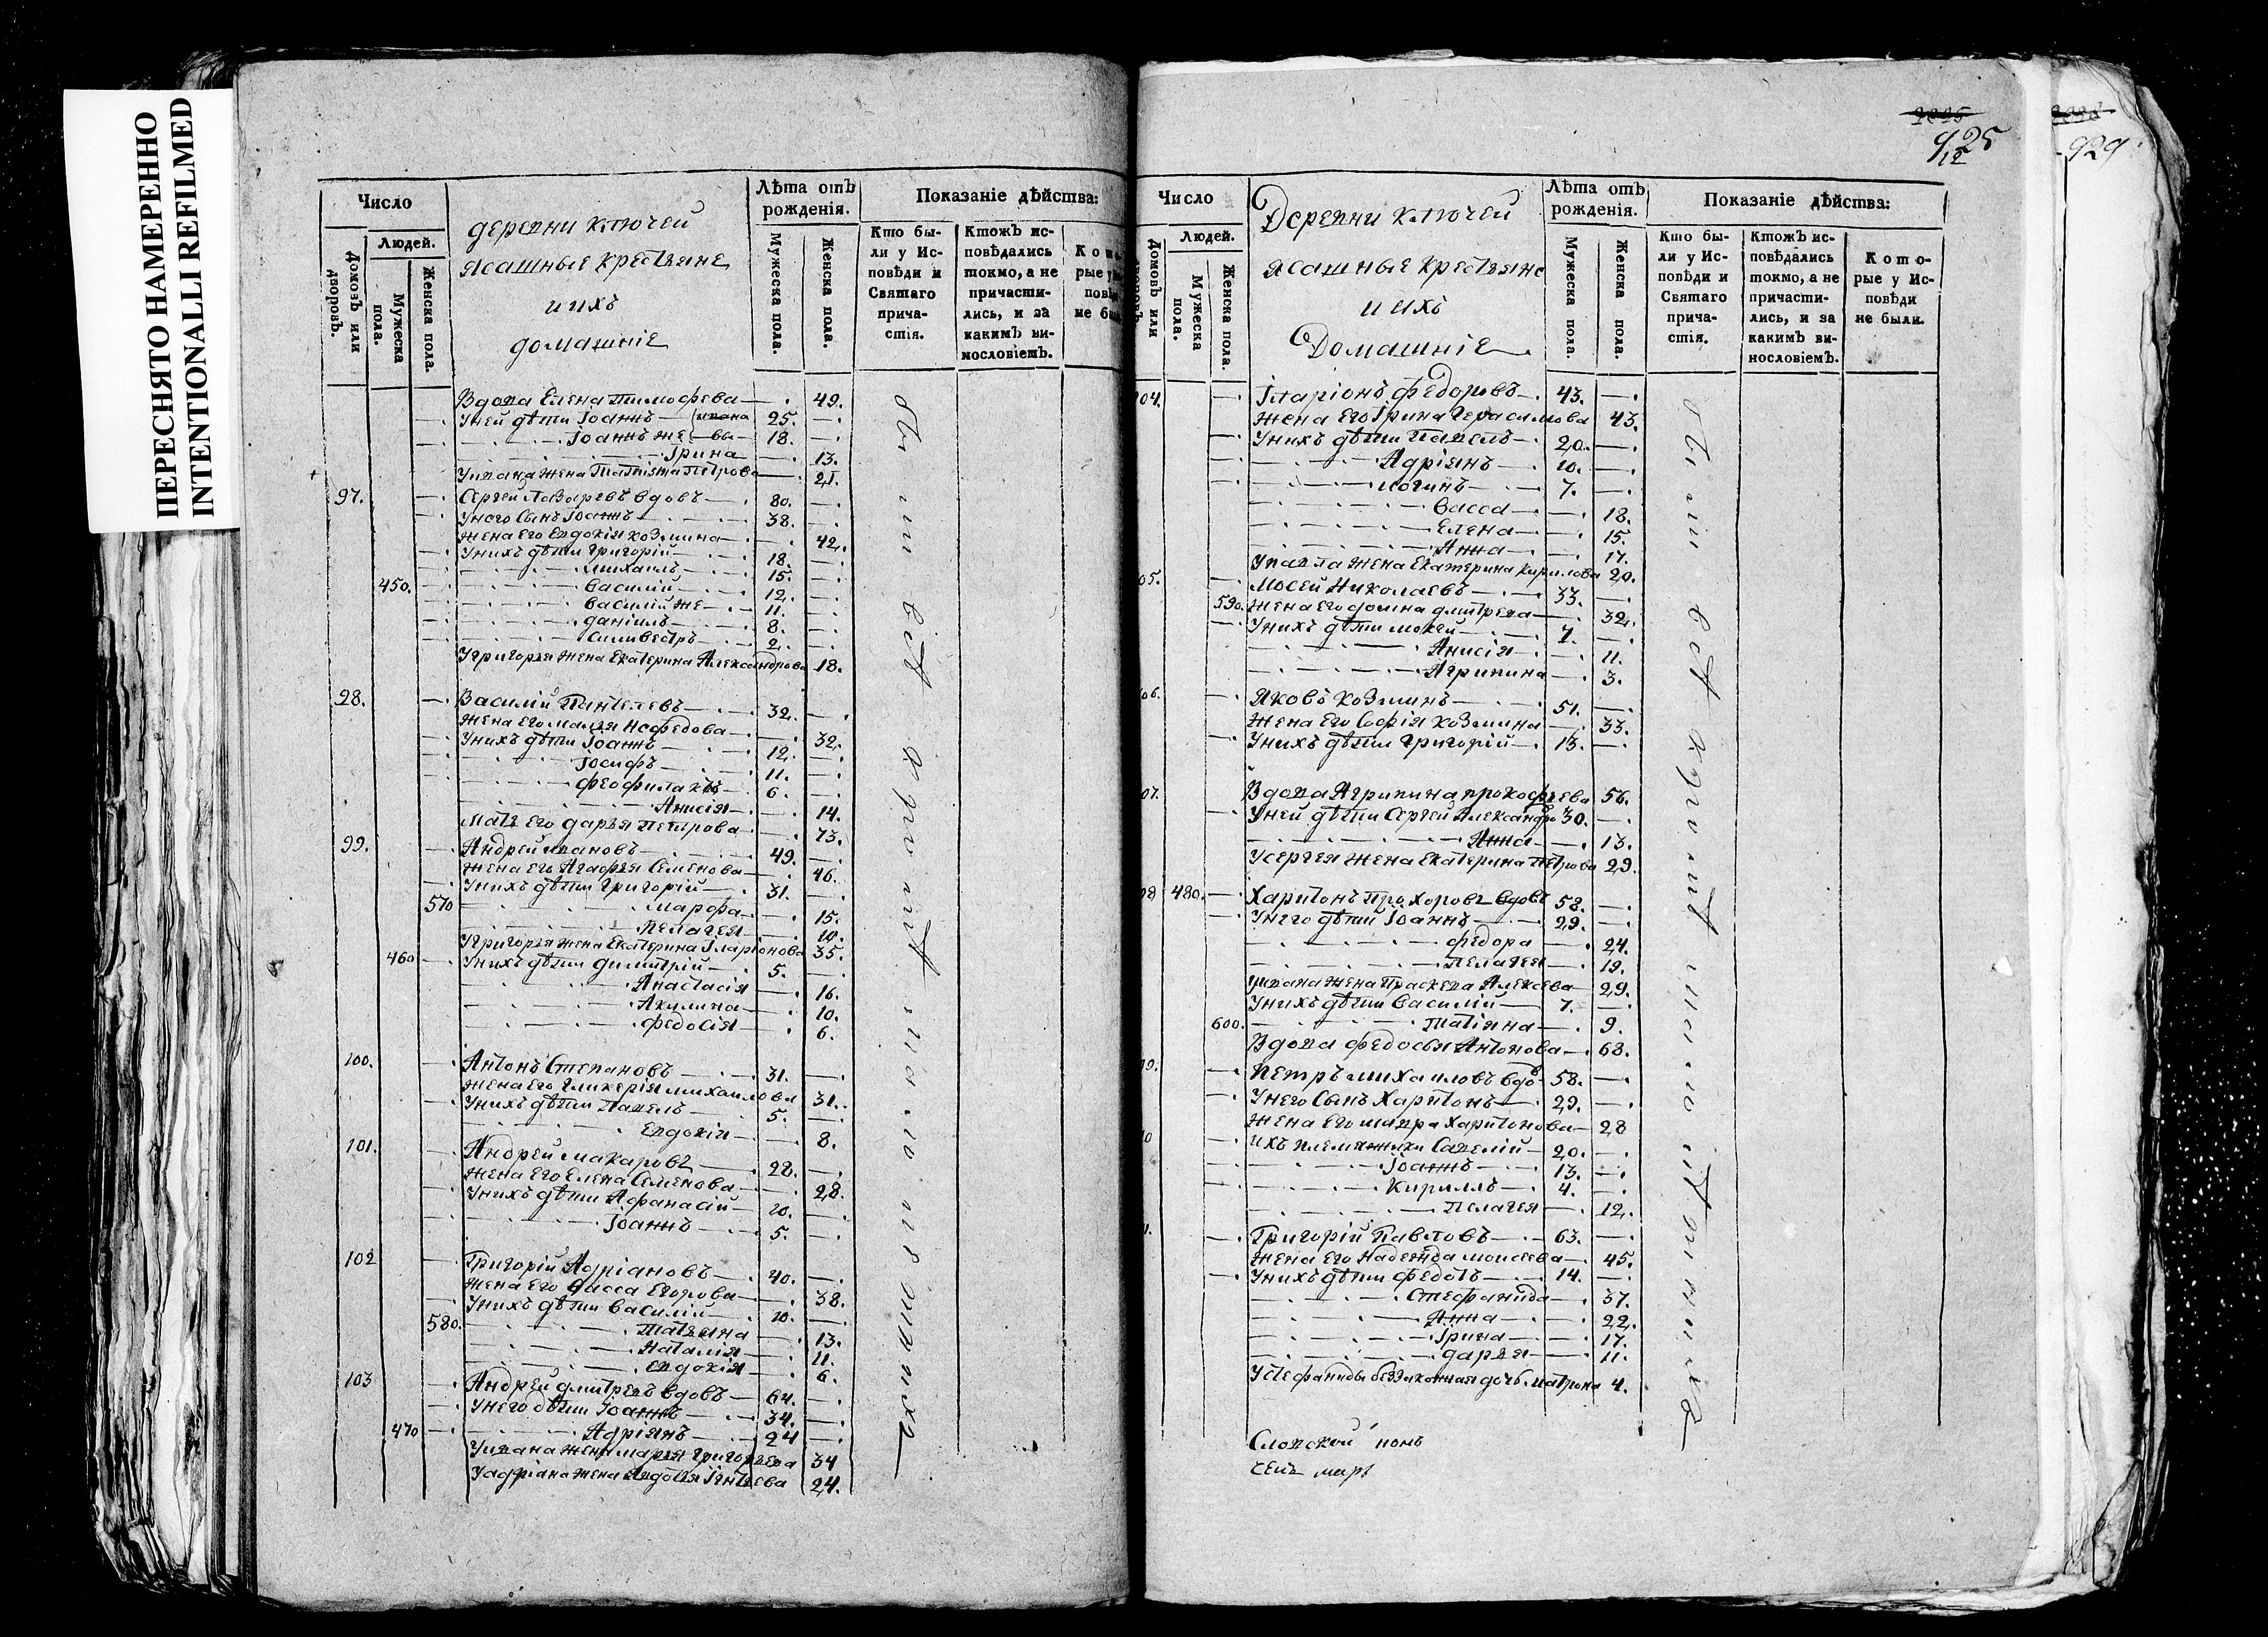 ПЕРЕСНЯТО НАМЕРЕННО
INTENTIONALLI REFILMED
Число
Людей.
Домовъ или дворовъ.
Мужеска пола.
Женска пола.
деревни ключей
ясашные крестьяне
и ихъ
домашніе
Лѣта отъ рожденія.
Мужеска пола.
Женска пола.
Показаніе дѣйства:
Кто были у Исповѣди и Святаго причастія.
Ктожъ исповѣдались токмо, а не причастились, и за какимъ винословіемъ.
Вдова Елена Тимофева — 49.
Уней дѣти Іоаннъ — 25.
Іоаннъ же — 18.
Ірина — 13.
Уивана жена Татіяна Петрова — 21.
97. Сергей Лазаревъ вдовъ — 80.
Унего сынъ Іоаннъ — 38.
жена его Евдокія козмина — 42.
Унихъ дѣти Григорій — 18.
Михаилъ — 15.
450. Василій — 12.
василій же — 11.
даніилъ — 8.
Силивестръ — 2.
Угригорья жена Екатерина Александрова 18.
98. Василій Пантелевъ — 32.
жена его малья Нефедова — 32.
Унихъ дѣти Іоаннъ — 12.
Іосифъ — 11.
феофилактъ — 6.
Анисія — 14.
Мать его дарья Петрова — 73.
99. Андрей ивановъ — 49.
жена его Агафья Семенова — 46.
Унихъ дѣти Григорій — 31.
570 Марфа — 15.
Пелагея — 10.
Угригорья жена Екатерина Іларіонова 35.
460 Унихъ дѣти Димитрій — 5.
Анастасія — 16.
Акилина — 10.
Федосія — 6.
100. Антонъ Степановъ — 31.
жена его Гликерія михаилова 31.
Унихъ дѣти Павелъ — 5.
Евдокія — 8.
101. Андрей Макаровъ — 28.
жена его Елена Семенова — 28.
Унихъ дѣти Афанасій — 10.
Іоаннъ — 5.
102 Григорій Адріановъ — 40.
жена его Васса Егорова — 38.
Унихъ дѣти Василій — 10.
580. Татьяна — 13.
Наталія — 11.
Евдокія — 6.
103 Андрей дмитревъ вдовъ — 64.
Унего дѣти Іоаннъ — 34.
470 Адріянъ — 24
Уивана жена марья Григорьева 34
Уадріана жена Авдотья Игнтьева 24.
925
929
Число
Людей.
Домовъ или
Мужеска пола.
Женска пола.
Деревни ключей
ясашные крестьяне
и ихъ
Домашніе
Лѣта отъ рожденія.
Мужеска пола.
Женска пола.
Показаніе дѣйства:
Кто были у Исповѣди и Святаго причастія.
Ктожъ исповѣдались токмо, а не причастились, и за какимъ винословіемъ.
Которые у Исповѣди не были.
04. Іларіонъ федоровъ — 43.
жена его Ірина Герасимова 43.
Унихъ дѣти Павелъ — 20.
Адріянъ — 10.
логинъ — 7.
Васса — 18.
Елена — 15.
Анна — 17.
Упавла жена Екатерина кирилова 20.
05. Мосей Николаевъ — 33.
590. жена его домна дмитрева — 32.
Унихъ дѣти мокей — 7.
Анисія — 11.
Агрипина — 3.
06. Яковъ козминъ — 51.
жена его Софія козмина — 33.
Унихъ дѣти Григорій — 13.
07. Вдова Агрипина прокофьева 56.
Уней дѣти Сергей Александръ 30.
Анна — 13.
Усергея жена Екатерина Петрова 29.
08 480. Харитонъ Прохоровъ вдовъ 58.
Унего дѣти Іоаннъ — 29.
федора — 24.
Пелагея — 19.
Уивана жена Праскева Алексева — 29.
Унихъ дѣти Василій — 7.
600. Татіяна — 9.
Вдова федосья Антонова — 68.
09. Петръ михаиловъ вдо 58.
Унего сынъ Харитонъ — 29.
жена его мавра Харитонова — 28
10 ихъ племянники Савелій — 20.
Іоаннъ — 13.
Кириллъ — 4.
Пелагея — 12.
Григорій Павловъ — 63.
жена его Надежда моисеева — 45.
Унихъ дѣти федотъ — 14.
Стефанида — 37.
Анна — 22.
Ірина — 17.
дарья — 11.
Устефаниды беззаконная дочь матрона 4.